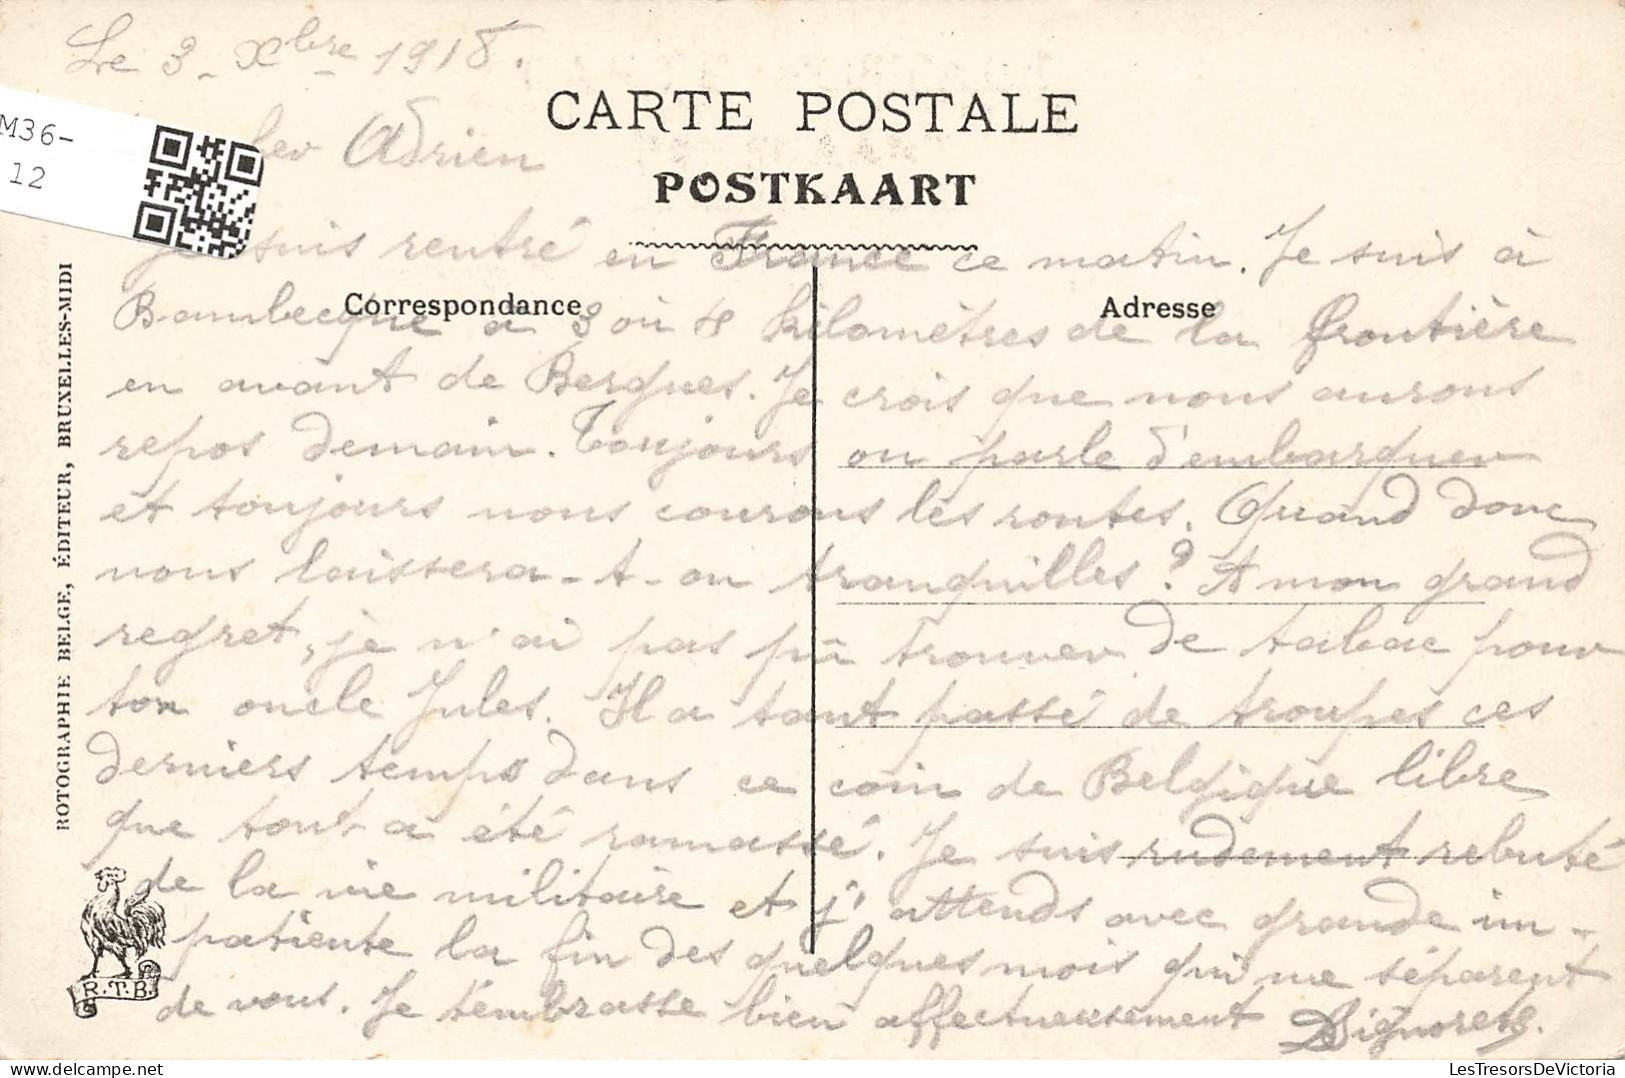 Le 3 - Xbre 1918.
M36-
12
Adrien
CARTE POSTALE
POSTKAART
suis rentré en France ce matin. Je suis à
Correspondance
Adresse
Bambecque à 3 ou 4 kilomètres de la frontière
en avant de Bergues. Je crois que nous aurons
repos demain. Toujours on parle d'embarquer
et toujours nous courons les routes. Quand donc
nous laissera-t-on tranquilles ? A mon grand
regret, je n'ai pas pû trouver de tabac pour
ton oncle Jules. Il a tant passé de troupes ces
derniers temps dans ce coin de Belgique libre
que tout a été ramassé. Je suis rudement rebuté
de la vie militaire et j'attends avec grande im-
patiente la fin des quelques mois qui me séparent
de vous. Je t'embrasse bien affectueusement
ROTOGRAPHIE BELGE, ÉDITEUR, BRUXELLES-MIDI
R.T.B.
LesTresorsDeVictoria